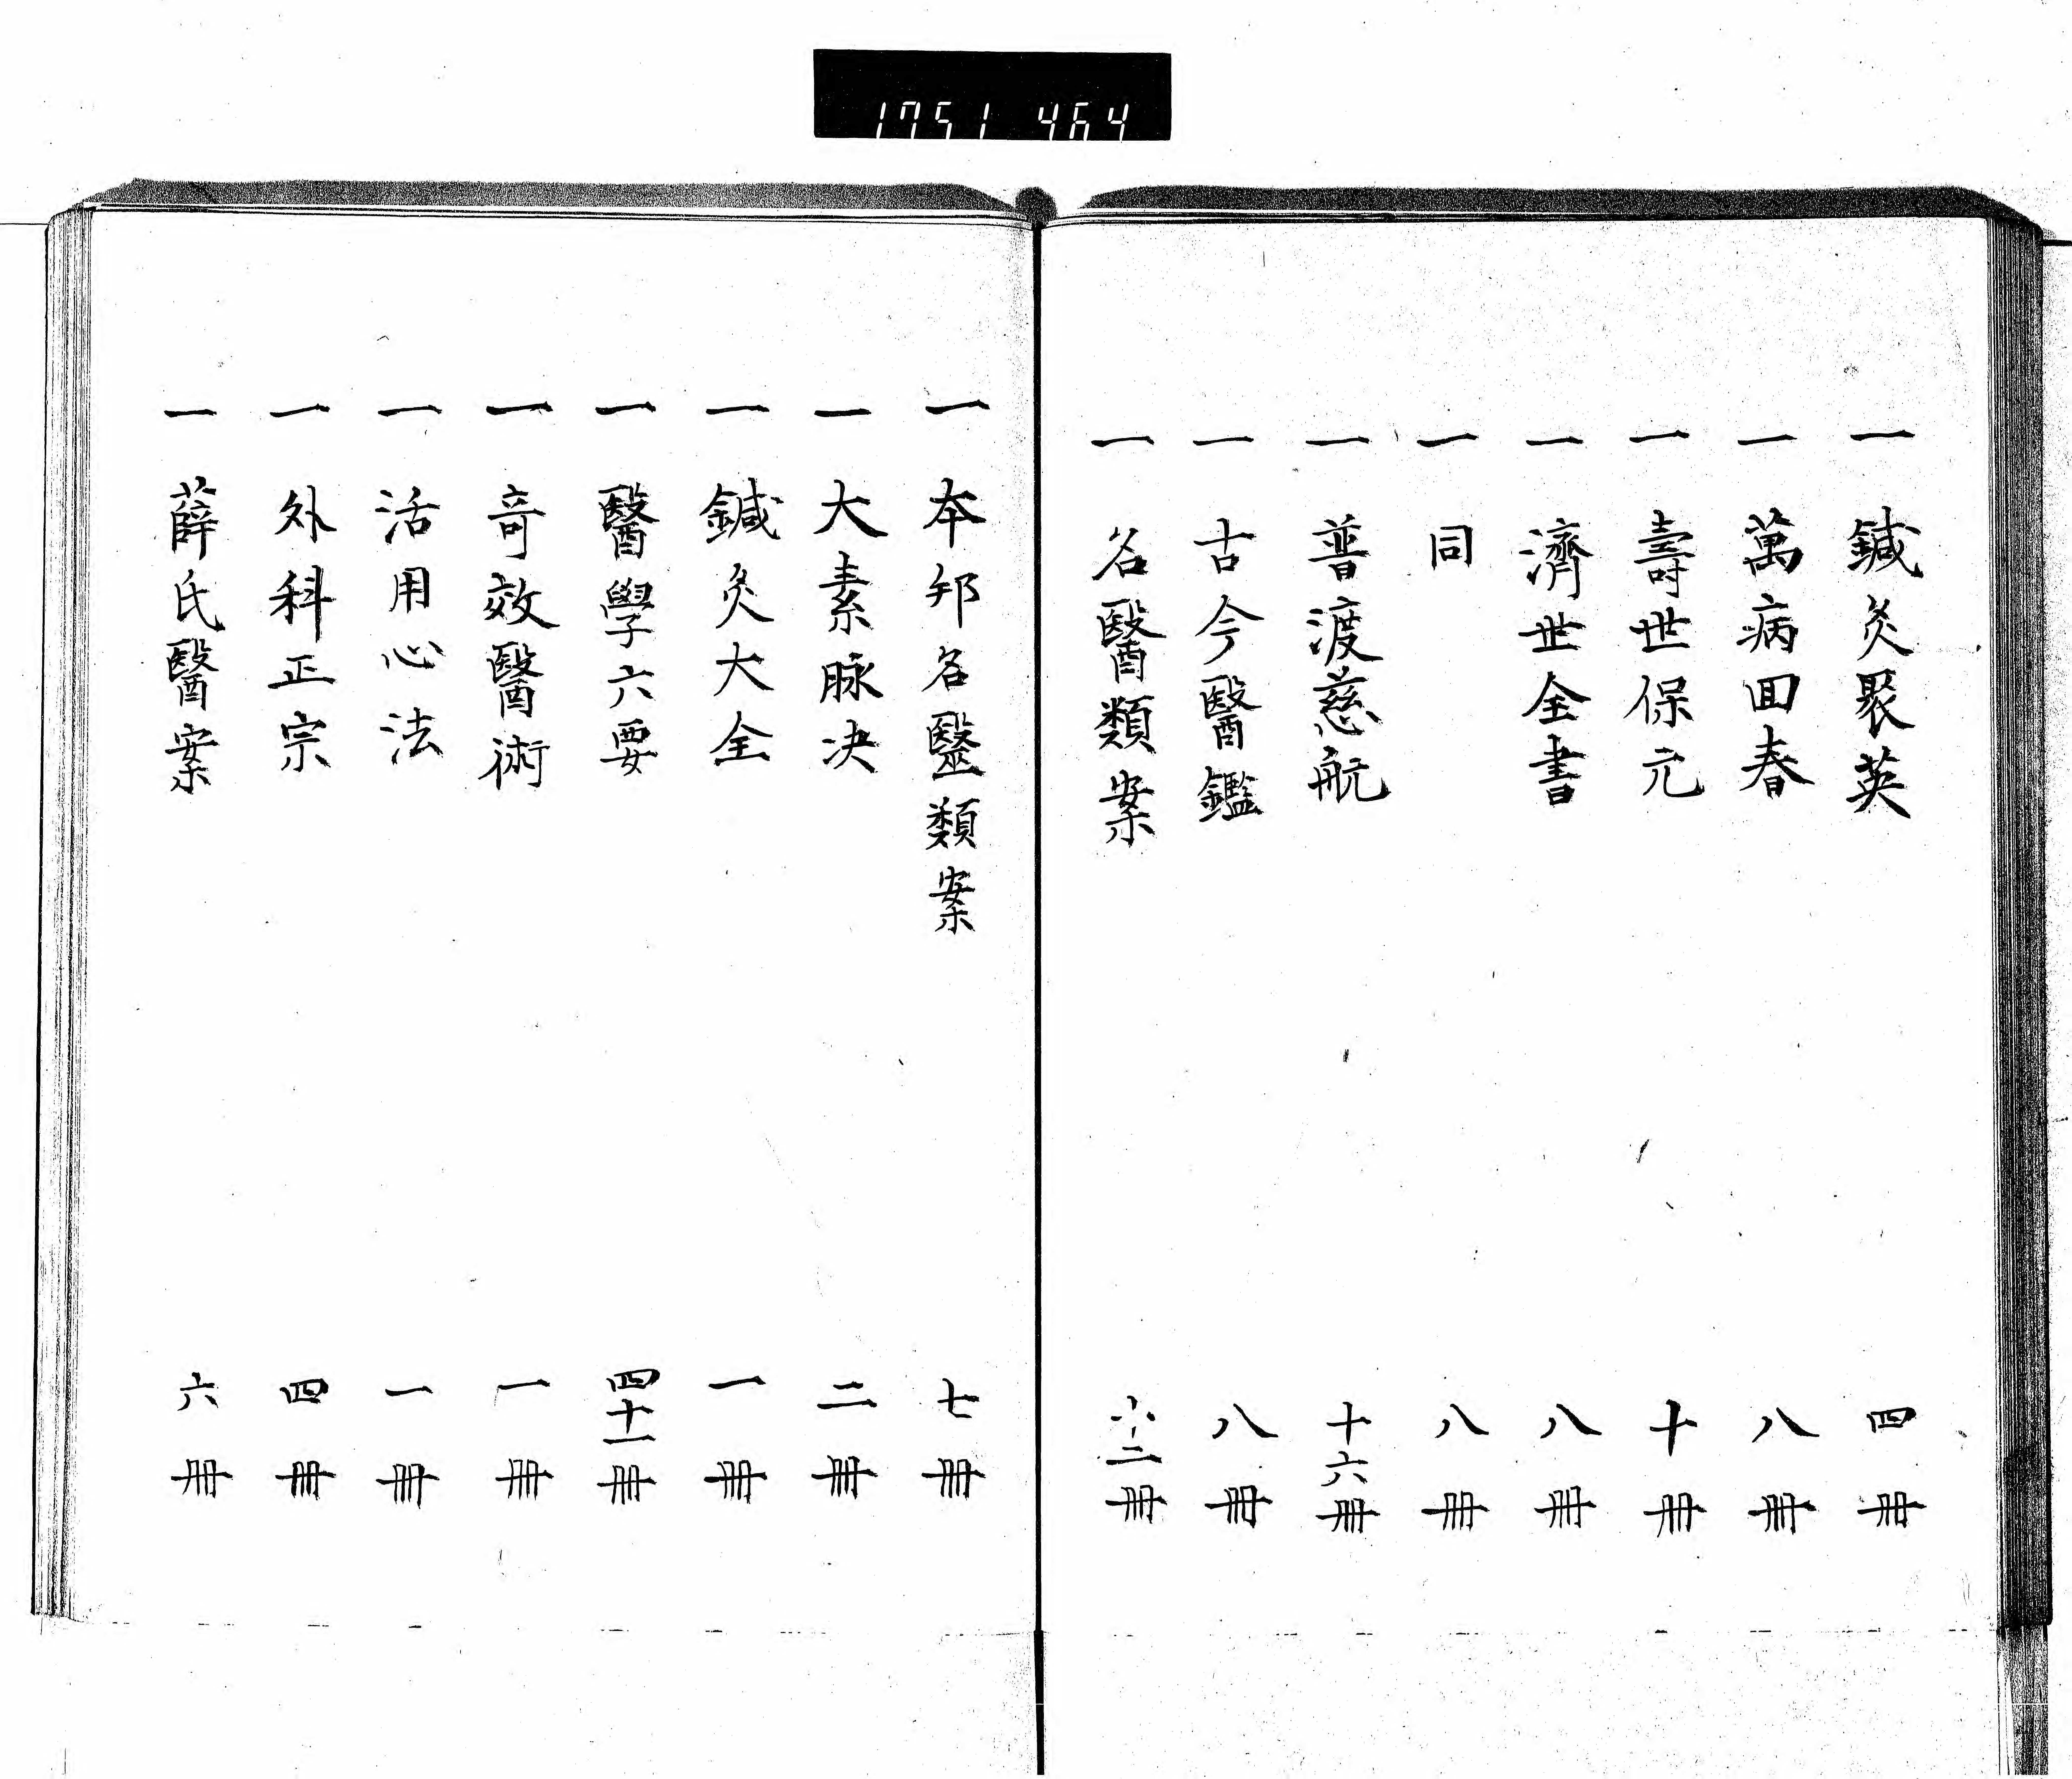 1751 464
一 鍼灸聚英 四冊
一 萬病回春 八冊
一 壽世保元 十冊
一 濟世全書 八冊
一 同 八冊
一 普渡慈航 十六冊
一 古今醫鑑 八冊
一 名醫類案 十二冊
一 本邦名毉類案 七冊
一 大素脉决 二冊
一 鍼灸大全 一冊
一 醫學六要 四十一冊
一 竒效醫術 一冊
一 活用心法 一冊
一 外科正宗 四冊
一 薛氏醫案 六冊